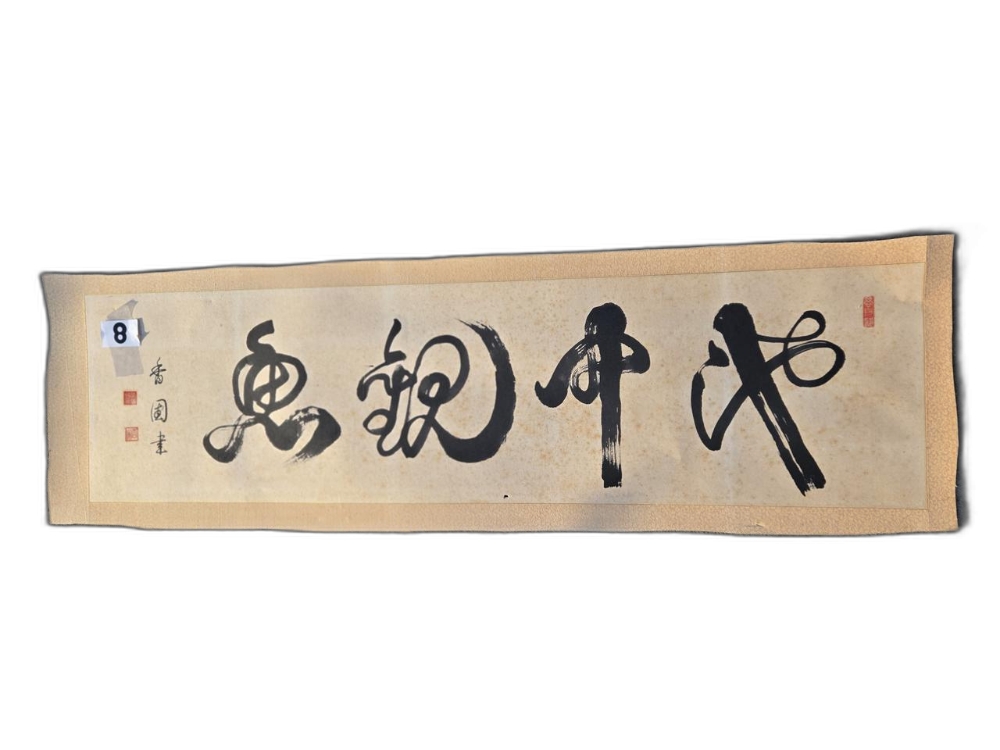 池中觀魚
香 書
8